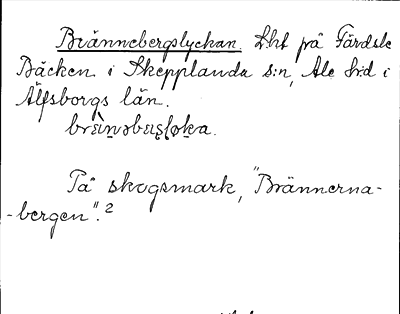 Brännebergslyckan. Lht på Färdsle
Bäcken i Skepplanda s:n, Ale h:d i
Älfsborgs län.
På skogsmark, "Brännerna-
-bergen".²